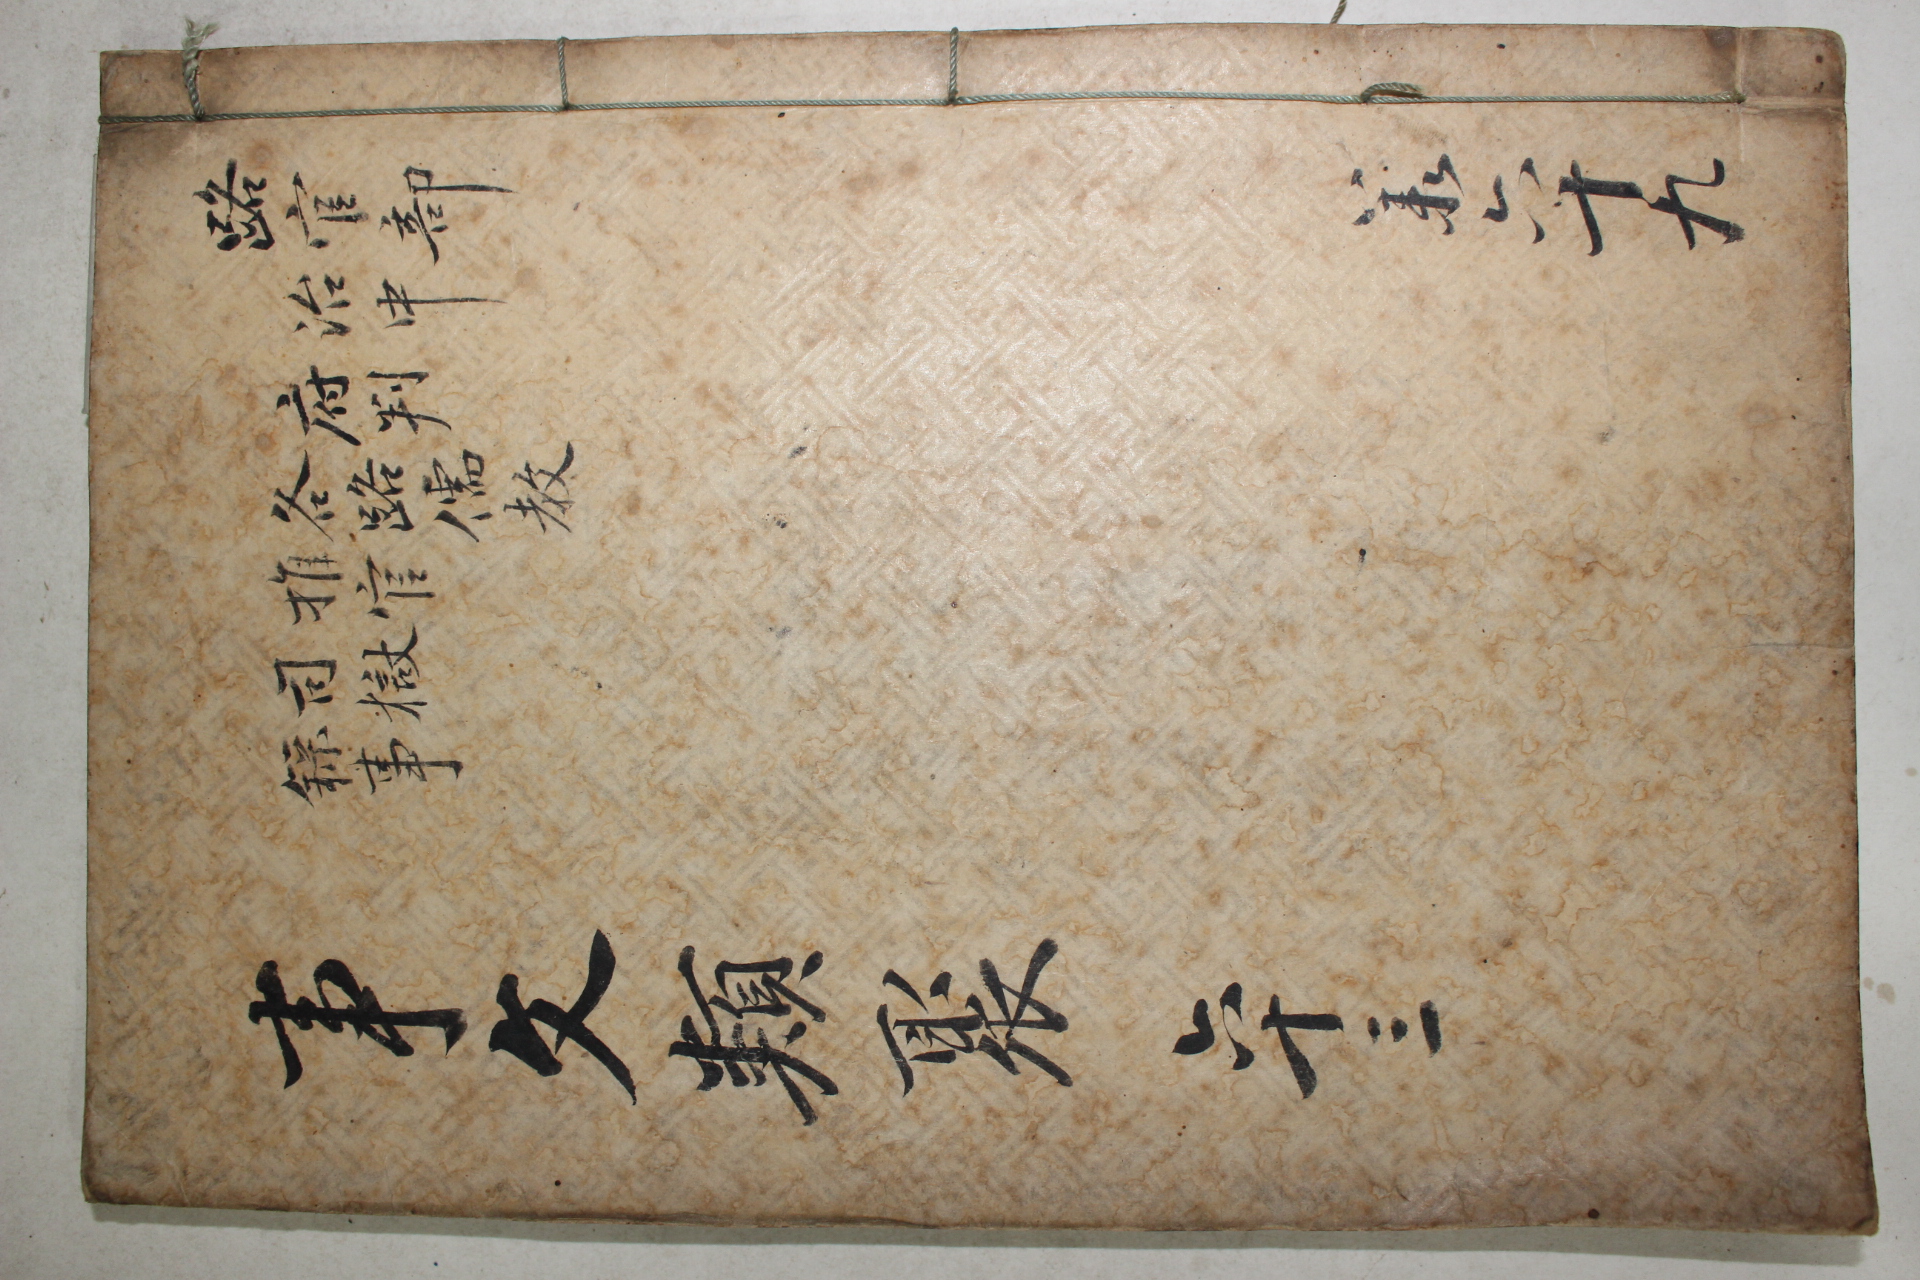 路官部
治中
府判
各路儒教
推官
司獄
錄事
六十九
事文類聚 六十三